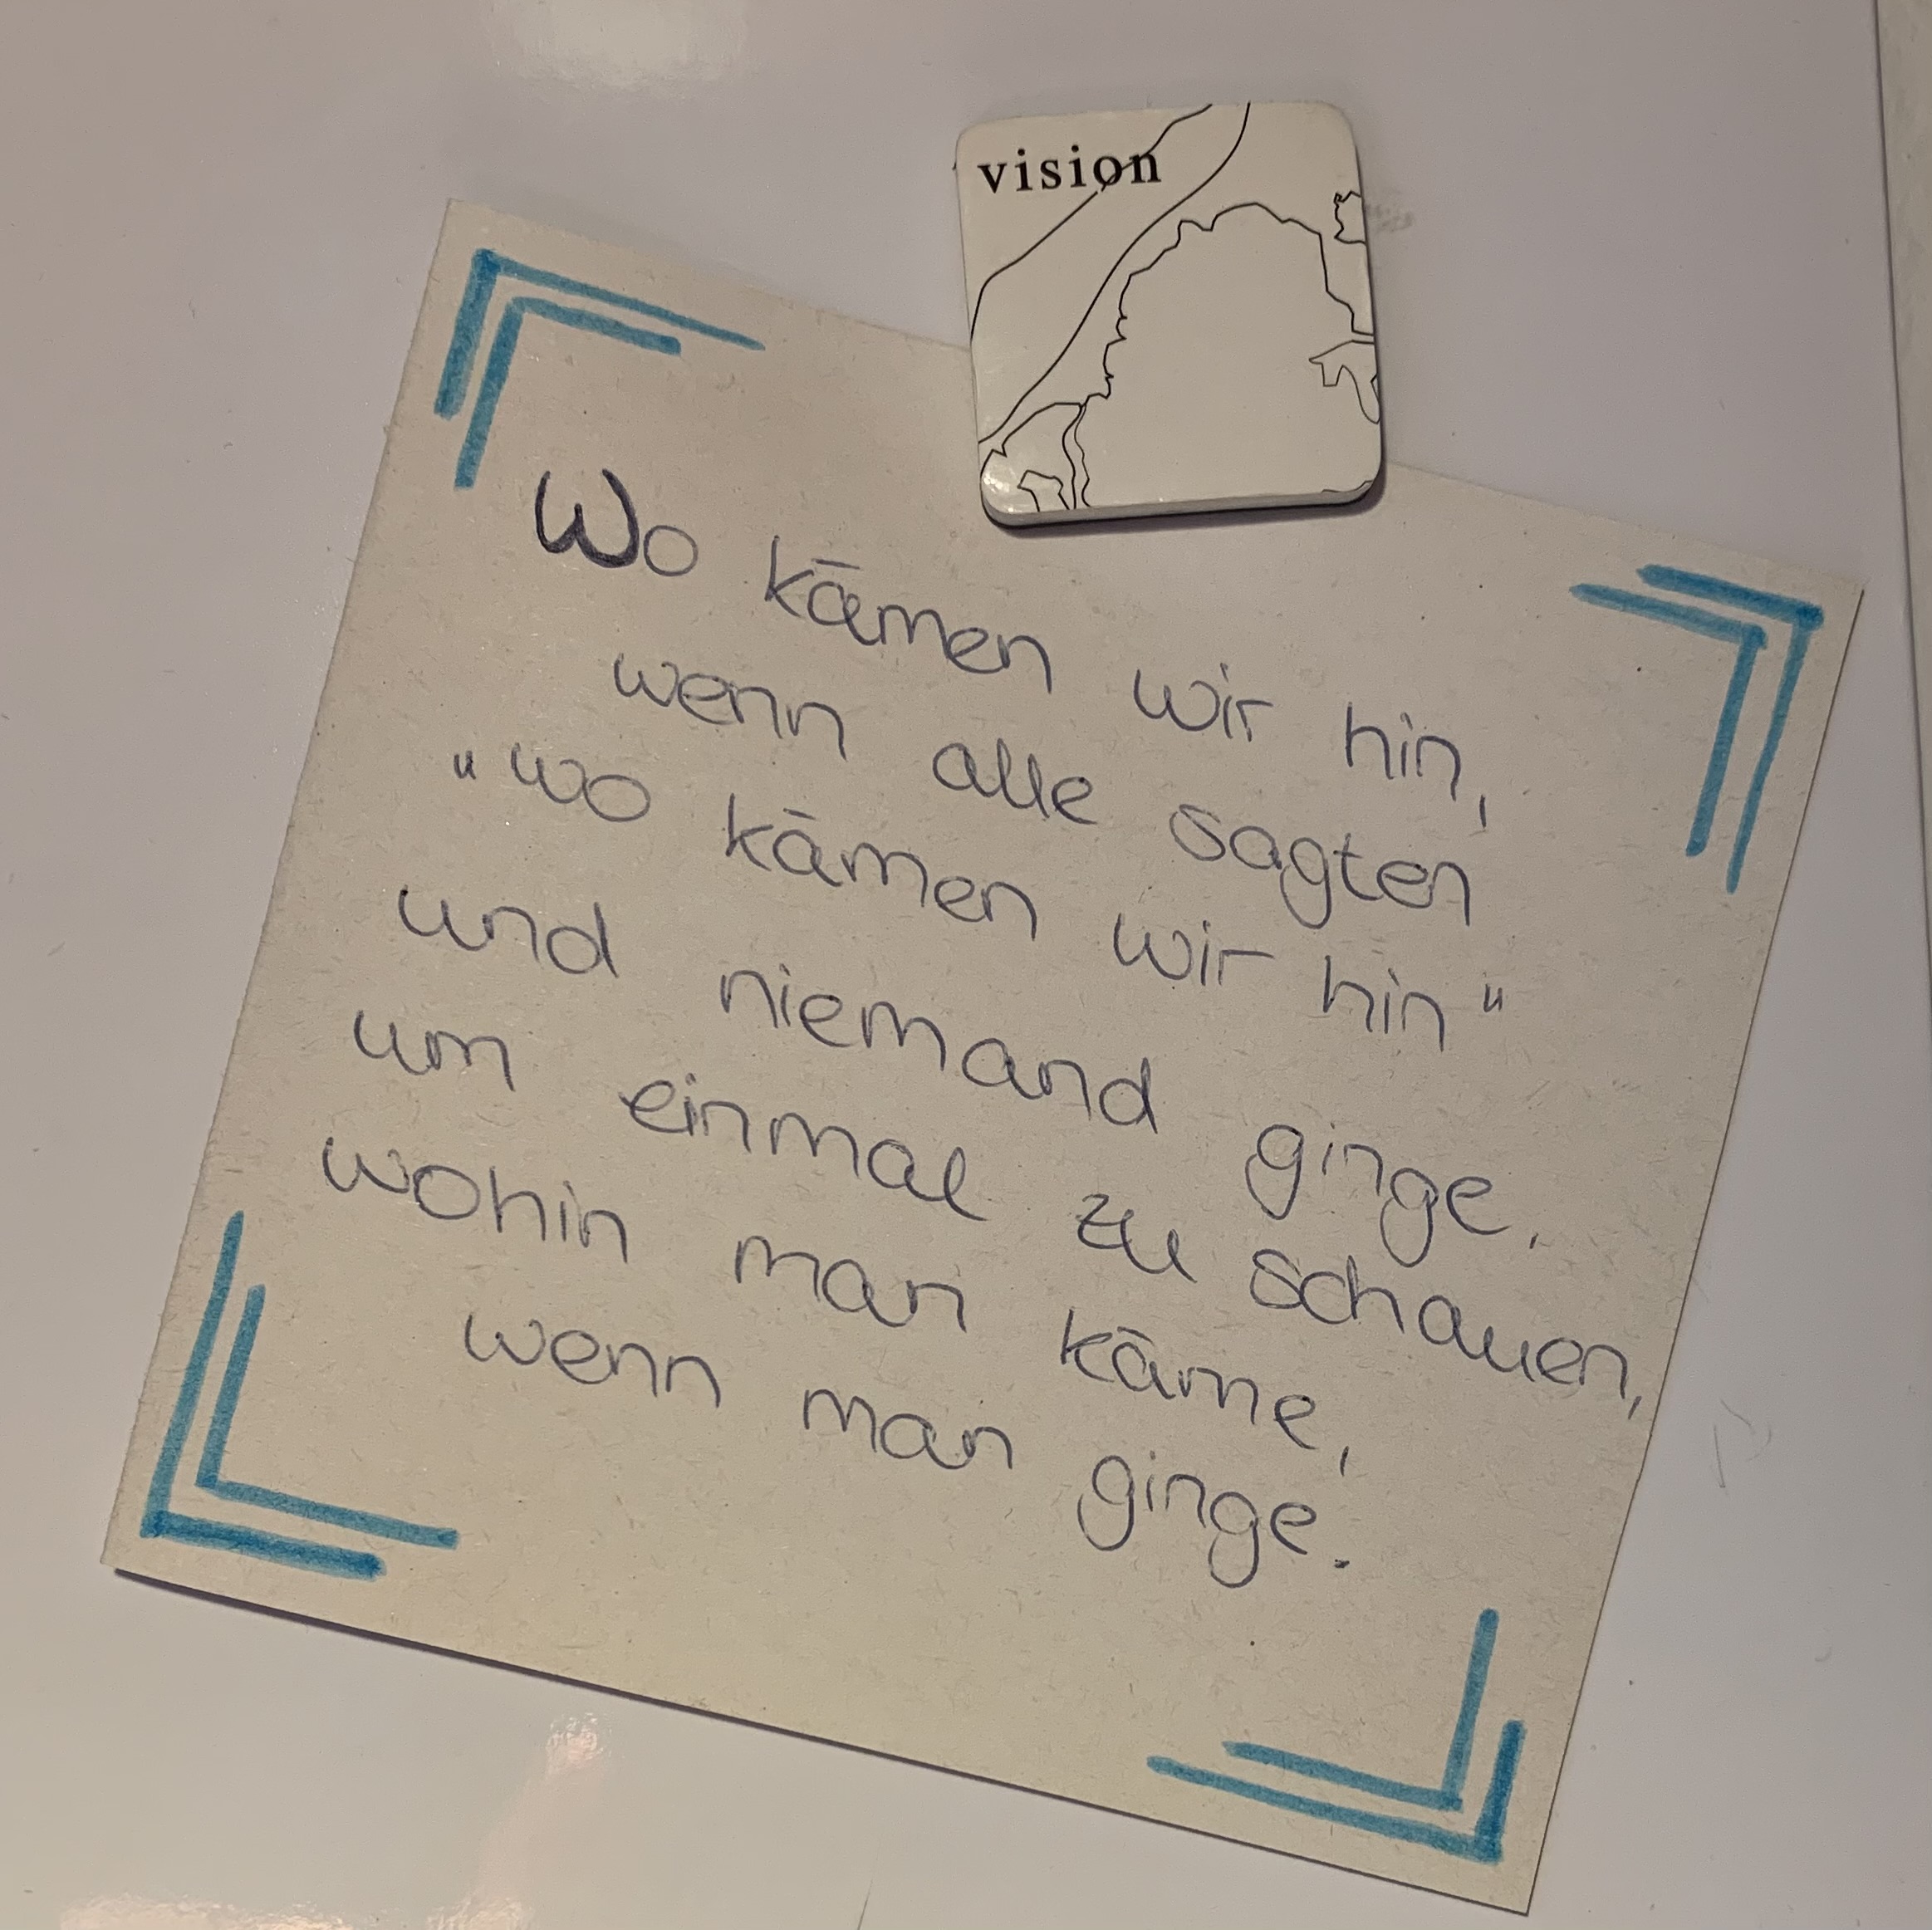 vision
Wo kämen wir hin,
wenn alle sagten
"wo kämen wir hin"
und niemand ginge,
um einmal zu schauen,
wohin man käme,
wenn man ginge.